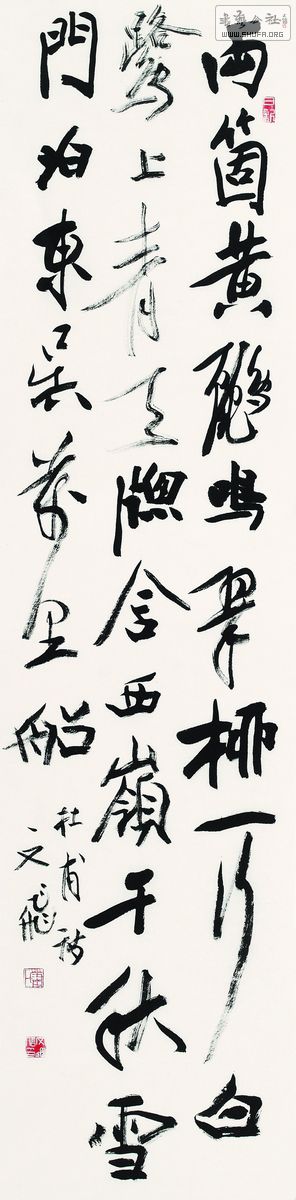 兩箇黄鸝鳴翠柳一行白
鷺上青天牕含西嶺千秋雪
門泊東吴萬里船
杜甫詩
書藝公社
WWW.SHUFA.ORG